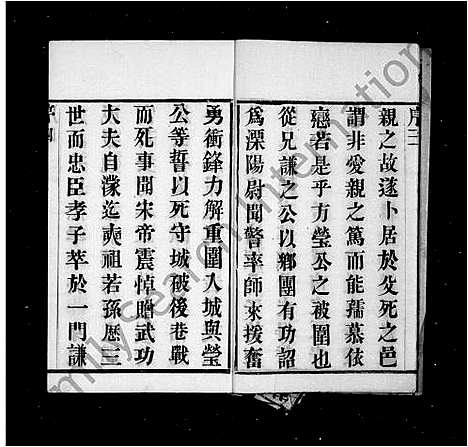 序三
親之故遂卜居於父死之邑
謂非愛親之篤而能孺慕依
戀若是乎方瑩公之被圍也
從兄謙之公以鄉團有功詔
為溧陽尉聞警率師來援奮
勇衝鋒力解重圍入城與瑩
公等誓以死守城破後巷戰
而死事聞宋帝震悼贈武功
大夫自濠迄奭祖若孫歷三
世而忠臣孝子萃於一門謙
序四